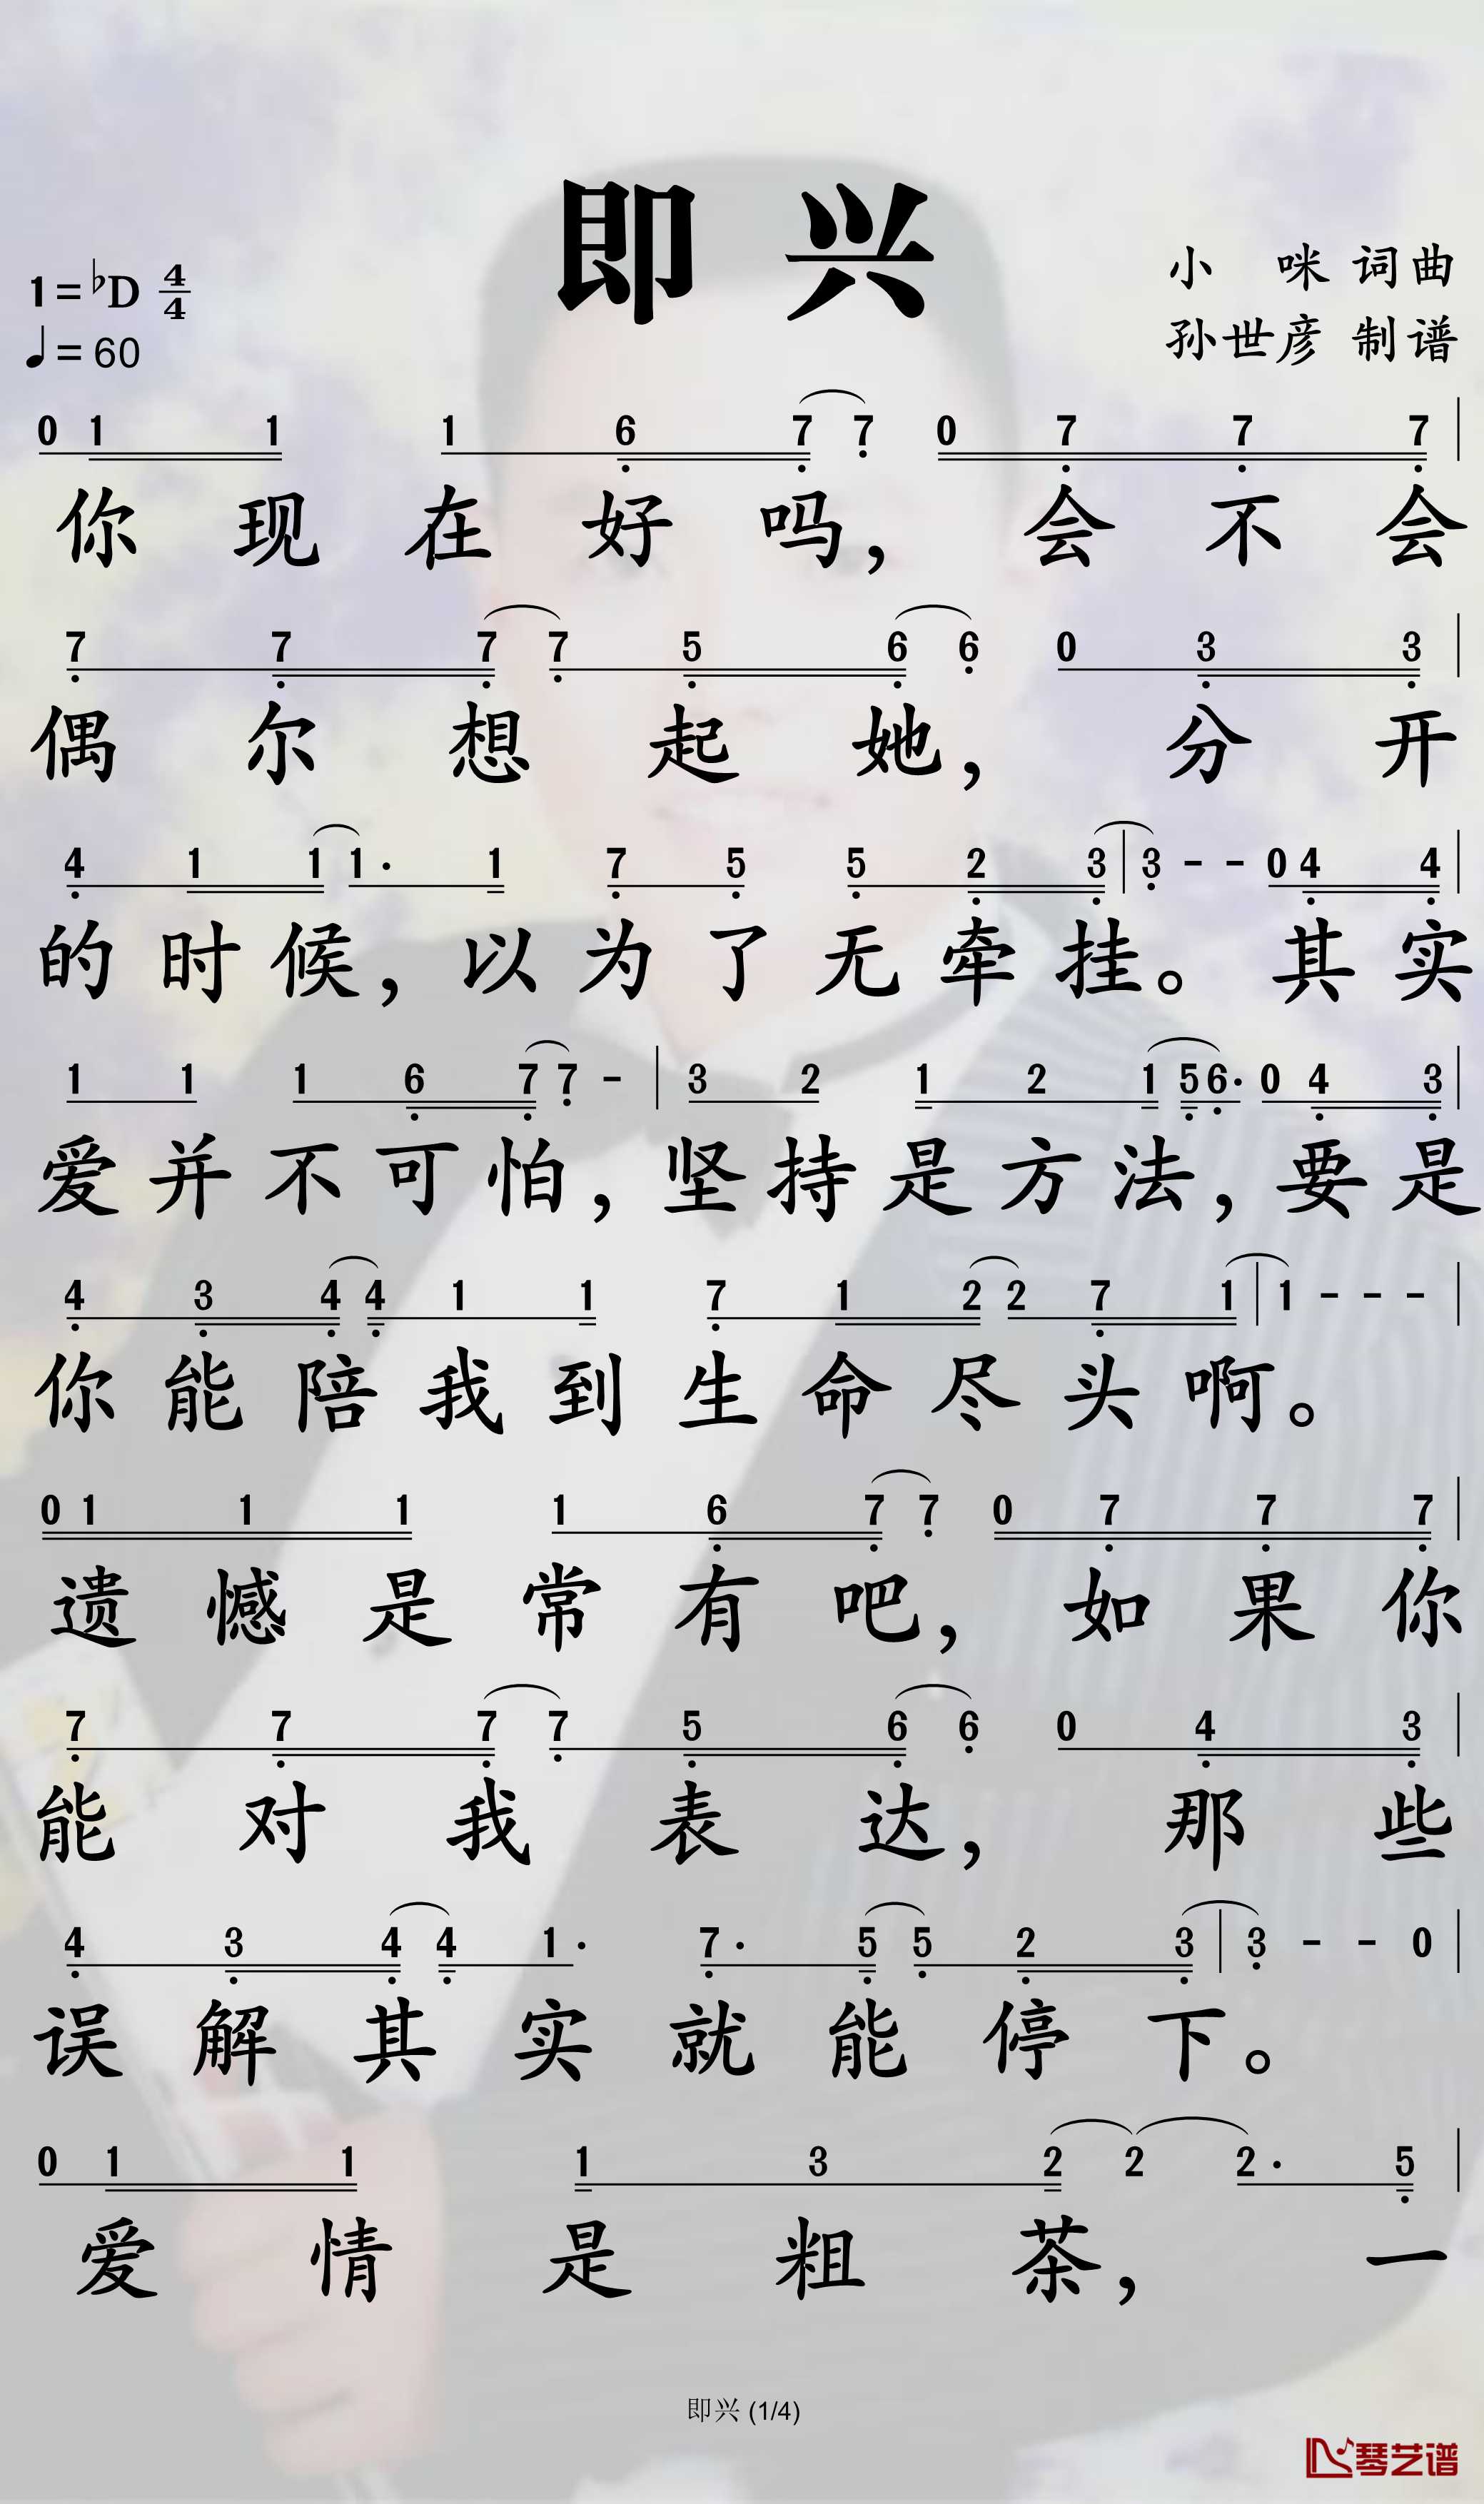 即兴
1=♭D 4/4
小咪 词曲
♩=60
孙世彦 制谱
0 1 1 1 6 7 7 0 7 7 7
你现在好吗，会不会
7 7 7 7 5 6 6 0 3 3
偶尔想起她，分开
4 1 1 1· 1 7 5 5 2 3 | 3 - - 0 4 4
的时候，以为了无牵挂。其实
1 1 1 6 7 7 - | 3 2 1 2 1 5 6· 0 4 3
爱并不可怕，坚持是方法，要是
4 3 4 4 1 1 7 1 2 2 7 1 | 1 - - -
你能陪我到生命尽头啊。
0 1 1 1 1 6 7 7 0 7 7 7
遗憾是常有吧，如果你
7 7 7 7 5 6 6 0 4 3
能对我表达，那些
4 3 4 4 1· 7· 5 5 2 3 | 3 - - 0
误解其实就能停下。
0 1 1 1 3 2 2 2· 5
爱情是粗茶，一
即兴 (1/4)
琴艺谱